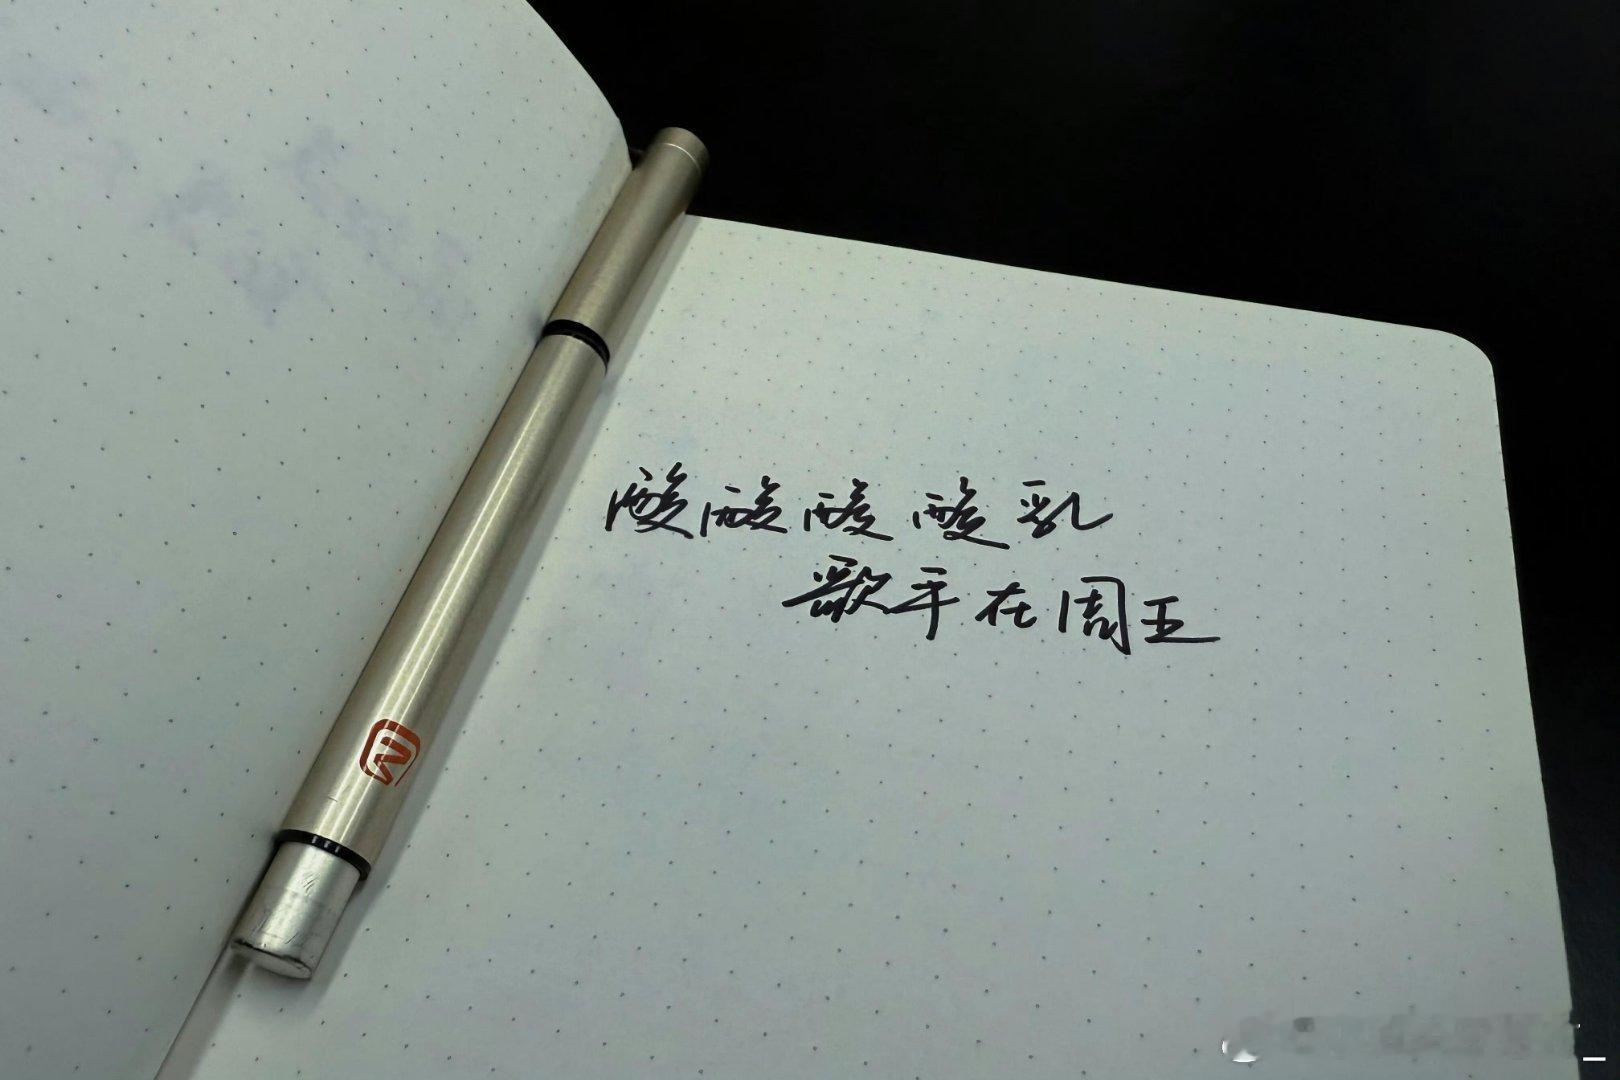 酸酸酸酸乳
歌手在周五